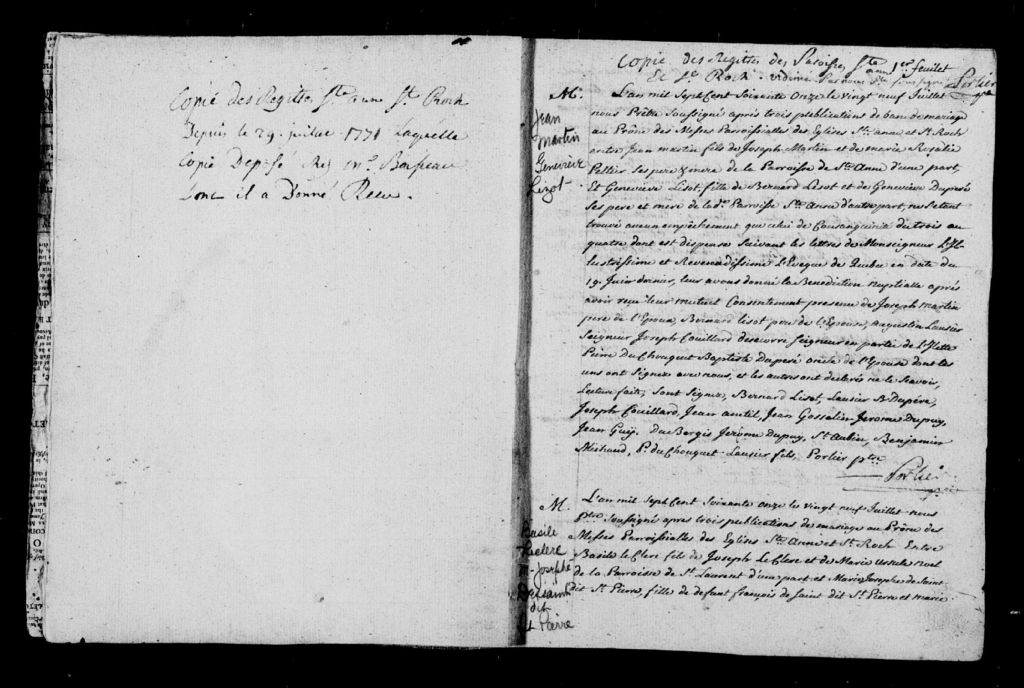 Copie des Regittes Ste anne St Roch
Depuis le 29. juillet 1771 Laquelle
Copie Deposé
Donc il a Donné Recu.
Copie des Regittes des Paroisses Ste anne 1er feuillet
Et St Roch.
Porlier ptre
M.
Jean
Martin
Genevieve
Lizot.
L'an mil Sept Cent Soixante Onze le vingt neuf Juillet
nous Prêtre Soussigné après trois publications de bans de mariage
au Prône des Messes Parroissialles des Eglises Ste anne et St Roch
entre Jean martin fils de Joseph Martin et de marie Rosalie
Peltier ses pere & mere de la Parroisse de Ste Anne d'une part,
Et Geneviève Lisot, fille de Bernard Lisot et de Geneviève Duperé
ses pere et mère de la de Parroisse Ste Anne d'autre part, ne S'etant
trouvé aucun empêchement que celui de Consanguinité du trois au
quatre dont est dispense Suivant les lettres de Monseigneur L'Il-
lustrissime et Reverendissime L'Eveque de Quebec en date du
19. Juin dernier, leur avons donné la Benediction nuptialle après
avoir reçu leur mutuel Consentement presence de Joseph Martin
pere de l'Epoux, Bernard lisot pere de l'Epouse, Augustin Lausier
Seigneur Joseph Couillard descorre Seigneur en partie de L'Ilette
Pierre Du Chouquet Baptiste Duperé oncle de l'Epouse dont les
uns ont Signez avec nous, et les autres ont declarés ne le Scavoir,
Lecture fait, Sont Signez, Bernard Lisot, Lausier B Dupéré,
Joseph Couillard, Jean autil, Jean Gosselin Jerome Dupuy,
Jean Guÿ. Du Bergés Jerôme Dupuy, St Aubin, Benjamin
Michaud, P. du Chouquet Lausier fils, Porlier ptre
Porlier ptre
M.
Basile
Leclerc
M-Josephe
Desaint
dit
St Pierre
L'an mil Sept Cent Soixante onze le vingt neuf Juillet nous
Ptre Soussigné apres trois publications de mariage au Prône des
Messes Parroissialles des Eglises Ste Anne et St Roch Entre
Basile le Clerc fils de Joseph Le Clerc et de Marie Ursule noel
de la Parroisse de St Laurent d'une part et Marie Josephe de Saint
dit St Pierre, fille de defunt françois de Saint dit St Pierre et marie